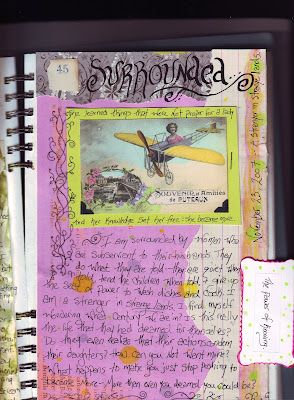 45
SURROUNDED
She learned things that were not proper for a lady
SOUVENIR d'Amitiés
de PUTEAUX
And her knowledge set her free... she became more...
I am surrounded by women who
are subservient to their husbands. They
do what they are told - they are quiet when
the and the children when told. I give up
power to wash dishes and cook. I
am a stranger in strange lands. I find myself
wondering what century we are in? Is this really
the life that they had dreamed for themselves?
Do they even realize that their actions condemn
their daughters? How can you not want more?
What happens to make you just stop pushing to
become more - more than even you dreamed you could be?
November 25, 2007 A Stranger in Strange Lands
The Power of Knowing